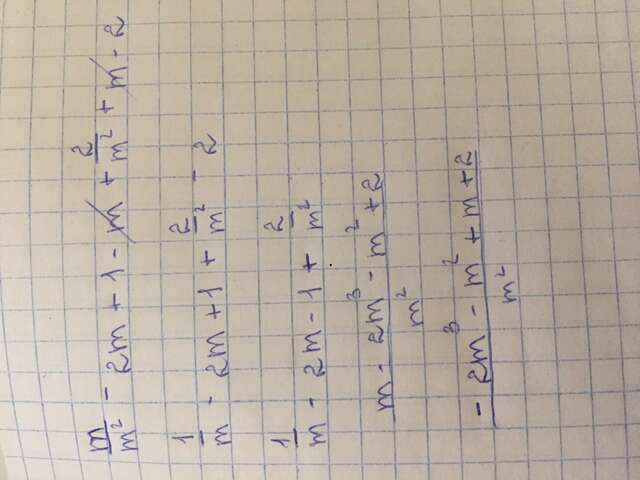 m/m² - 2m + 1 - m + 2/m² + m - 2
1/m - 2m + 1 + 2/m² - 2
1/m - 2m - 1 + 2/m²
(m - 2m³ - m² + 2)/m²
(- 2m³ - m² + m + 2)/m²